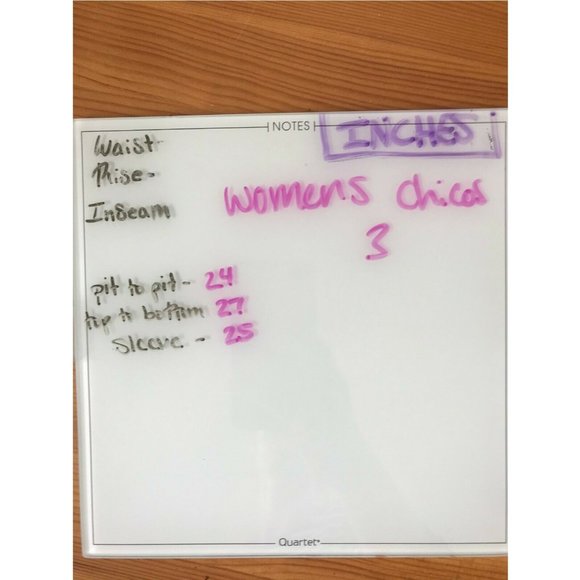 NOTES
INCHES
Waist
Rise-
Inseam
Womens Chicos
3
pit to pit - 24
top to bottom 27
Sleeve - 25
Quartet